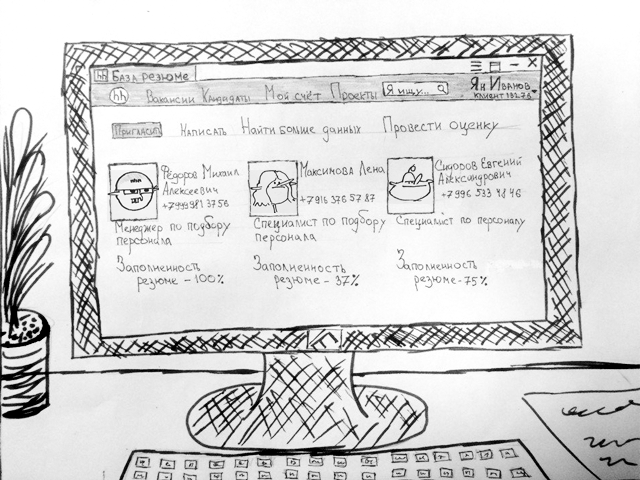 hh База резюме
hh Вакансии Кандидаты Мой счёт Проекты Я ищу... Ян Иванов
Клиент 13276
Пригласить Написать Найти больше данных Провести оценку
Фёдоров Михаил
Алексеевич
+7999 981 37 56
Менеджер по подбору
персонала
Заполненность
резюме - 100%
Максимова Лена
+7916 376 57 87
Специалист по подбору
персонала
Заполненность
резюме - 37%
Сидоров Евгений
Александрович
+7996 533 48 46
Специалист по персоналу
Заполненность
резюме - 75%